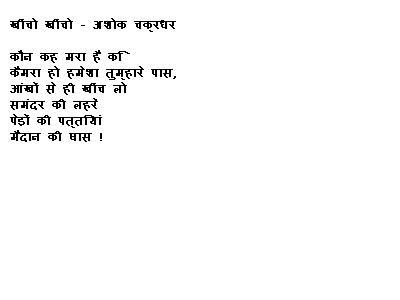 खींचो खींचो - अशोक चक्रधर
कौन कह मरा है कि
कैमरा हो हमेशा तुम्हारे पास,
आंखों से ही खींच लो
समंदर की लहरें
पेड़ों की पत्तियां
मैदान की घास !